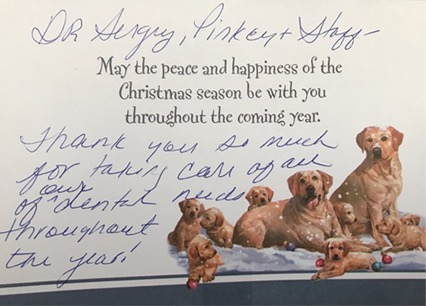 DR Sergey, Pinkey + Staff -
May the peace and happiness of the
Christmas season be with you
throughout the coming year.
Thank you so much
for taking care of all
of our dental needs
throughout
the year!